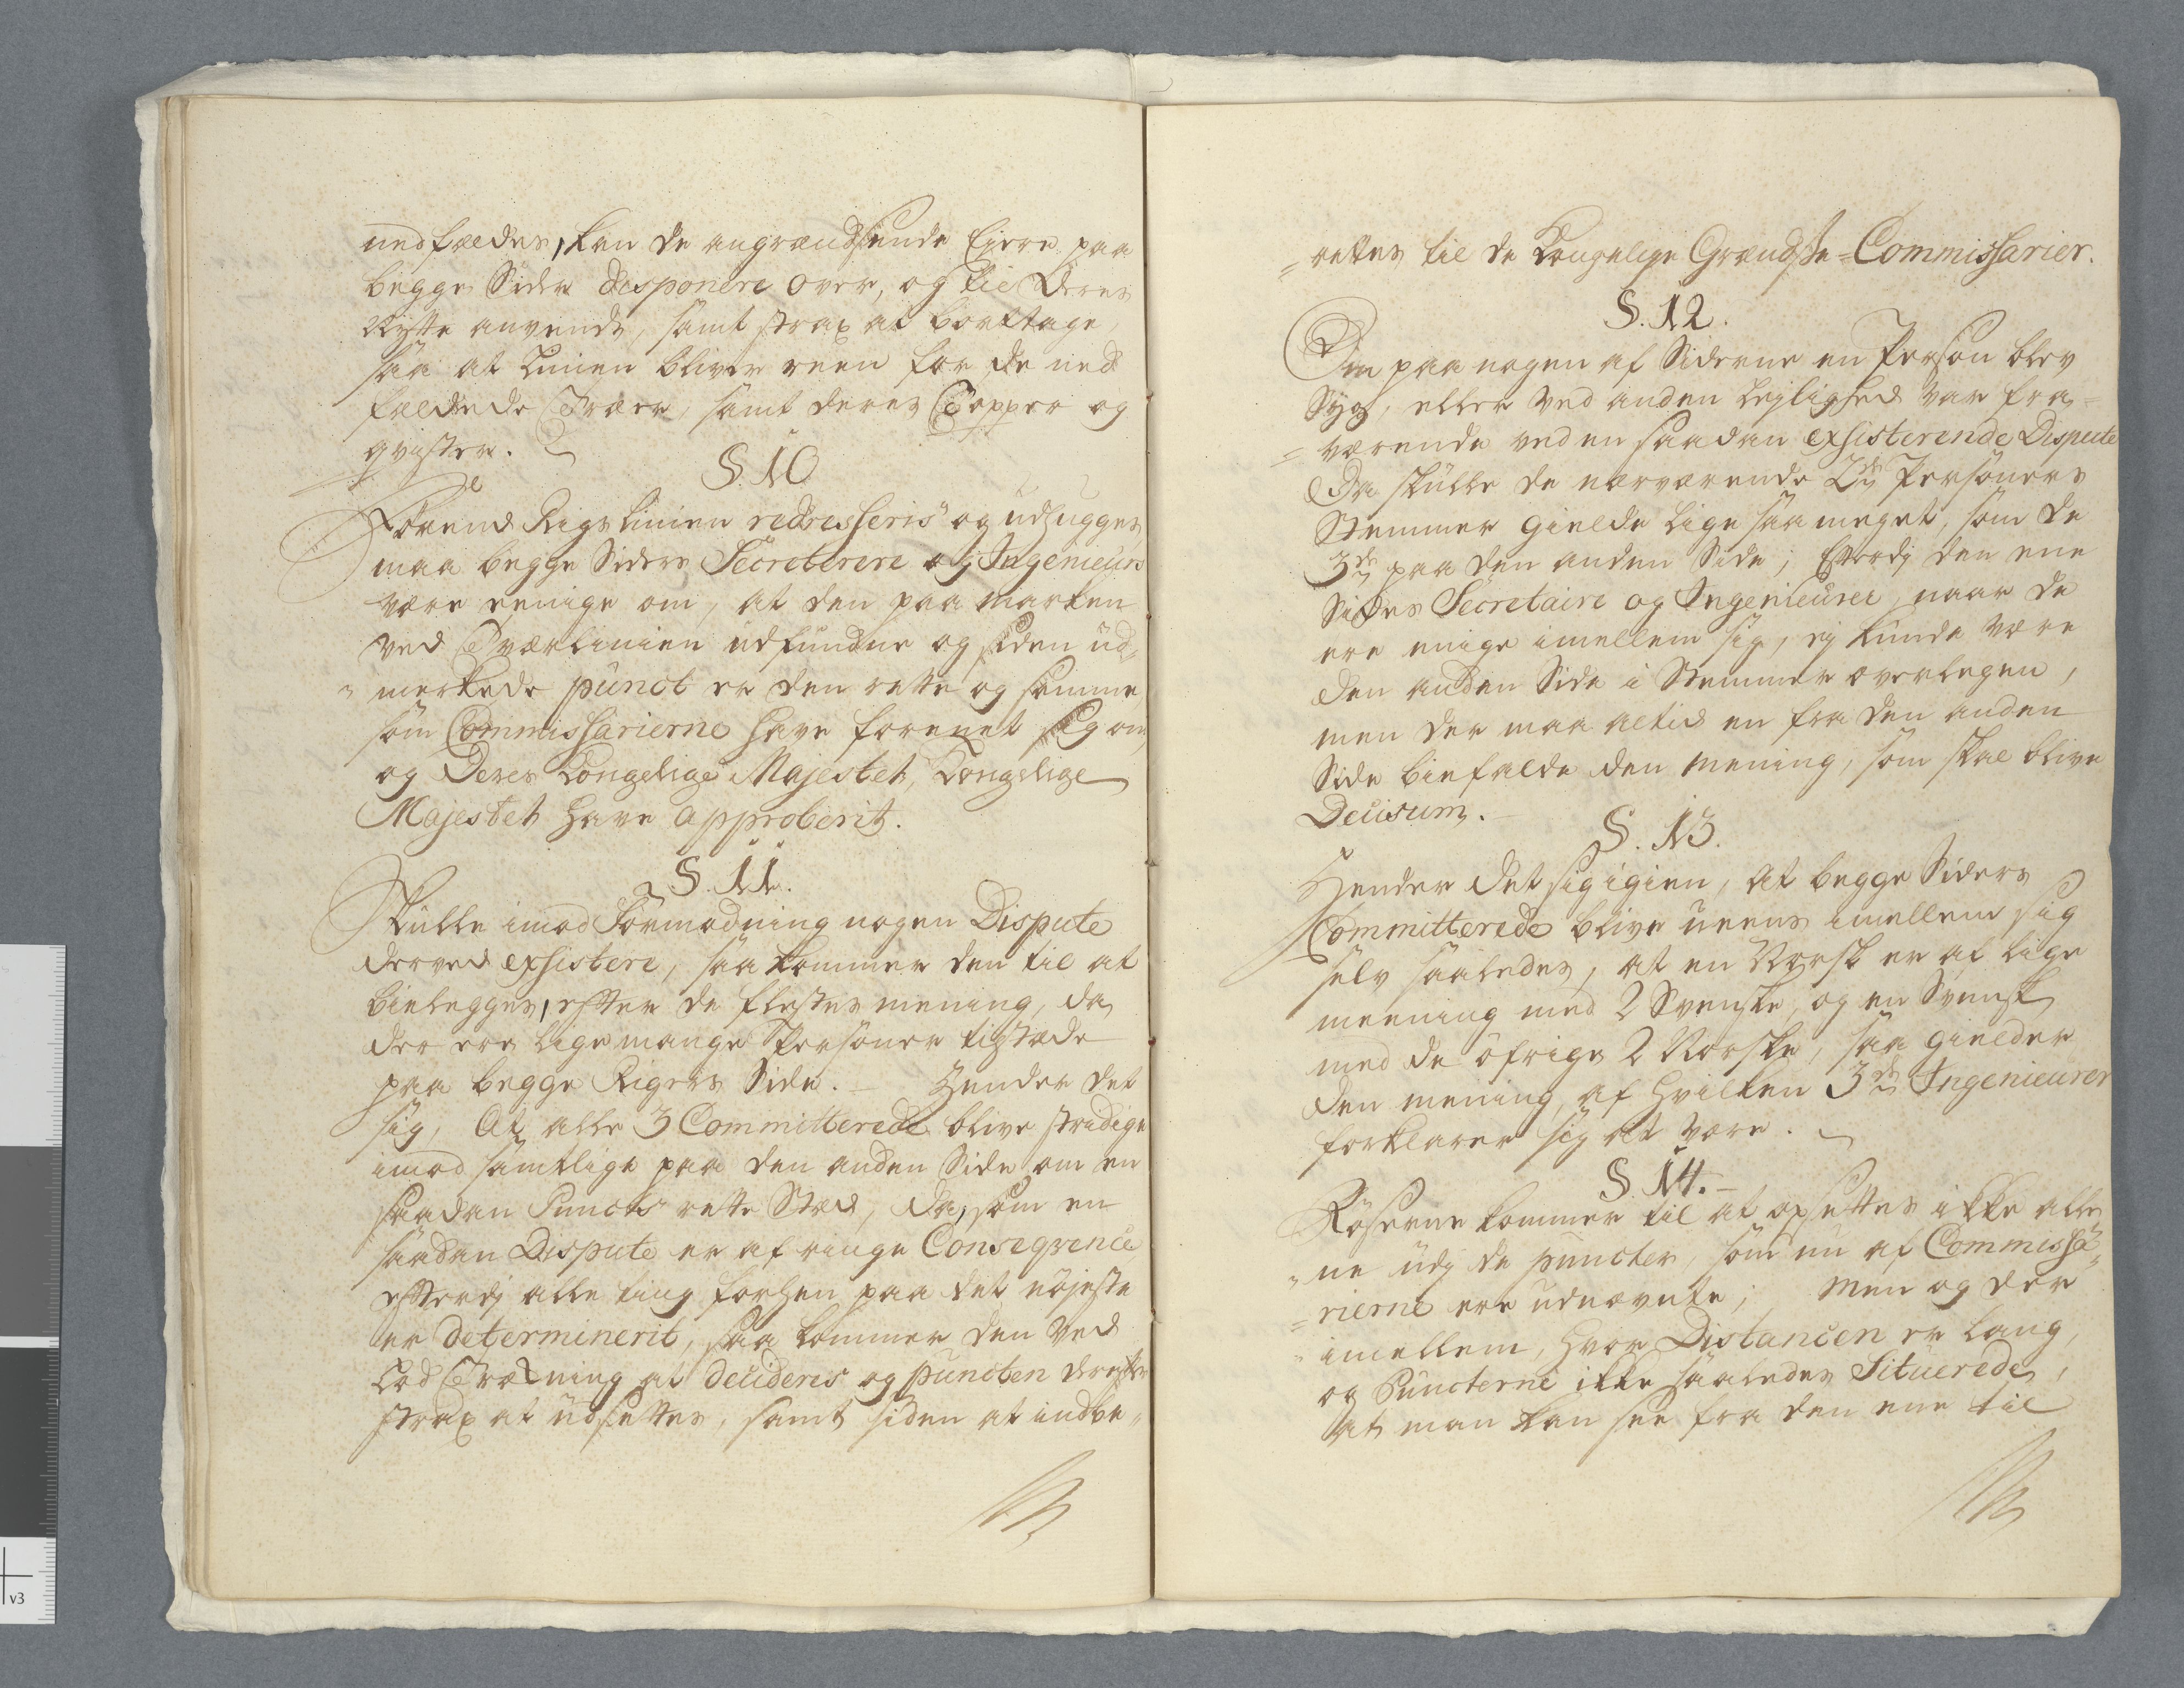 nedfældes, kan de angrændsende Eiere paa
begge Sider disponere over, og til Deres
Nytte anvende, samt strax at borttage,
saa at Linien bliver reen for de ned
fældede Træer, samt deres Topper og
qvister.
§. 10
Førend Rigs linien redresseris og udhugges
maa begge Siders Secreterere og Ingenieurs
være eenige om, at den paa marken
ved Tværlinien udfundne og siden ud„
„merkede punct er den rette og samme,
som Commissarierne have forenet sig om,
og Deres Kongelige Majestet, Kongelige
Majestet have approberit.
§. 11.
Skulle imod Formodning nogen Dispute
derved exsistere, saa kommer den til at
bielegges, efter de flestes mening, da
der ere lige mange Personer tilstæde
paa begge Rigers Side. – Hender det
sig, At alle 3 Committerede blive stridige
imod samtlige paa den anden Side om en
saadan Puncts rette Stæd, da, som en
saadan Dispute er af ringe Conseqvence
efterdj alle ting forhen paa det nøjeste
er determinerit, saa kommer den ved
Lod Trækning at decideres og puncten derefter
strax at udsettes, samt siden at indbe„
=rettes til de Kongelige Grændse=Commissarier.
§. 12.
Om paa nogen af Siderne en Person blev
Syg, eller ved anden lejlighed var fra=
=værende ved en saadan exsisterende Dispute
Da skulle de nærværende 2de Personers
Stemmer gielde lige saa meget, som de
3de paa den anden Side; Efterdj den ene
Sides Secretaire og Ingenieurer, naar de
ere enige imellem sig, ej kunde være
den anden Side i Stemmer overlegen,
men der maa altid en fra den anden
Side biefalde den mening, som skal blive
Decisum.
§. 13.
Hender det sig igien, at begge Siders
Committerede blive ueens imellem sig
selv saaledes, at en Norsk er af lige
meening med 2 Svenske, og en Svensk
med de öfrige 2 Norske, saa gielder
den mening, af hvilken 3de Ingenieurer
forklarer sig at være.
§. 14.
Röserne kommer til at opsettes ikke alle
„ne udj de puncter, som nu af Commissa„
=rierne ere udnævnte; Men og der
„imellem, hvor Distancen er lang,
og Puncterne ikke saaledes Situerede,
at man kan see fra den ene til